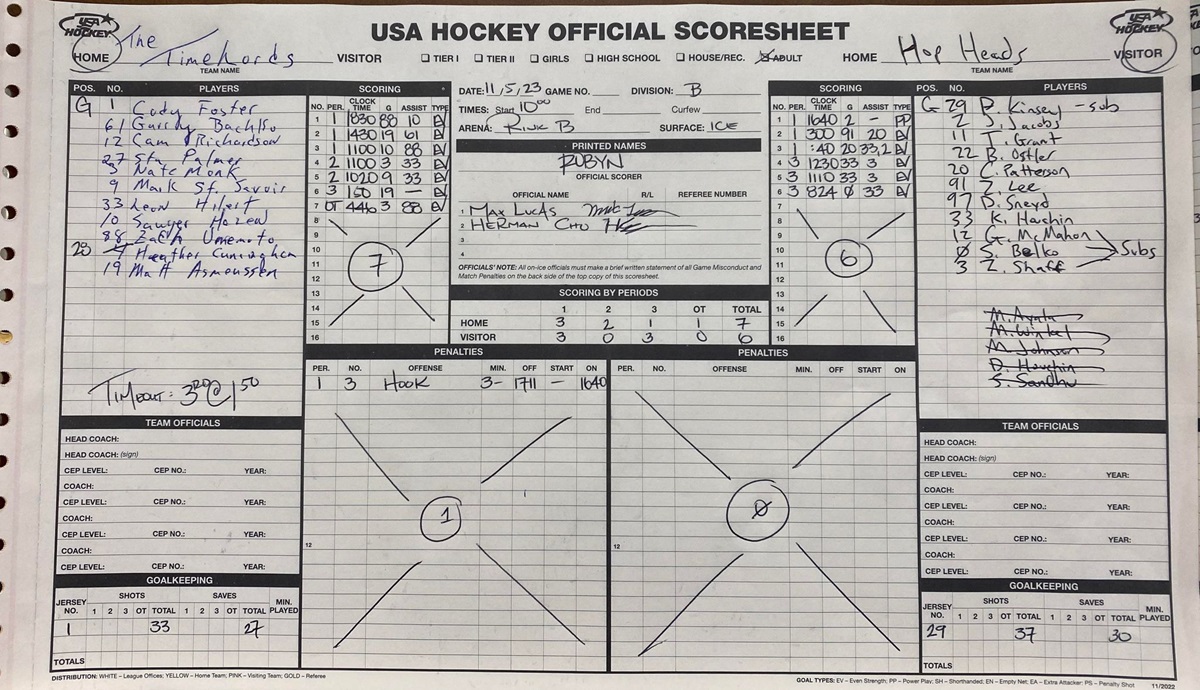 USA HOCKEY OFFICIAL SCORESHEET
USA HOCKEY
USA HOCKEY
HOME The TimeLords VISITOR ☐ TIER I ☐ TIER II ☐ GIRLS ☐ HIGH SCHOOL ☐ HOUSE/REC. ☒ ADULT HOME Hop Heads VISITOR
TEAM NAME TEAM NAME
POS. NO. PLAYERS
G 1 Cody Foster
61
12 Cam Richardson
27 Palmer
3 Nate Monk
9 Mark St. Savoir
33 Leon Hilert
10 Sawyer
88 Zach Umemoto
28 Heather Cunningham
19 Matt Asmeussen
TIMEOUT: 3RD @ 1 50
SCORING
NO. PER. CLOCK TIME G ASSIST TYPE
1 1 1830 88 10 EV
2 1 1430 19 61 EV
3 1 1100 10 88 EV
4 2 1100 3 33 EV
5 2 1020 9 33 EV
6 3 150 19 — EV
7 OT 446 3 88 EV
8
9
10
11
12
13
14
15
16
7
DATE: 11/5/23 GAME NO. DIVISION: B
TIMES: Start 10 00 End Curfew
ARENA: RINK B SURFACE: ICE
PRINTED NAMES
ROBYN
OFFICIAL SCORER
OFFICIAL NAME R/L REFEREE NUMBER
1 MAX LUCAS
2 HERMAN CHO
3
4
OFFICIALS' NOTE: All on-ice officials must make a brief written statement of all Game Misconduct and
Match Penalties on the back side of the top copy of this scoresheet.
SCORING BY PERIODS
1 2 3 OT TOTAL
HOME 3 2 1 1 7
VISITOR 3 0 3 0 6
SCORING
NO. PER. CLOCK TIME G ASSIST TYPE
1 1 1640 2 - PP
2 1 300 91 20 EV
3 1 :40 20 33,2 EV
4 3 1230 33 3 EV
5 3 1110 33 3 EV
6 3 824 Ø 33 EV
7
8
9
10
11
12
13
14
15
16
6
POS. NO. PLAYERS
G 29 D. Kinsey - sub
2 J. Jacobs
11 T. Grant
22 B. Ostler
20 C. Patterson
91 Z. Lee
97 D. Sneyd
33 K. Houchin
12 G. McMahon
Ø S. Belko Subs
3 Z. Shaff
M. Ayala
M. Winkel
M. Johnson
D. Houchin
S. Sandhu
PENALTIES
PER. NO. OFFENSE MIN. OFF START ON
1 3 HOOK 3- 1711 — 1640
1
12
PENALTIES
PER. NO. OFFENSE MIN. OFF START ON
Ø
12
TEAM OFFICIALS
HEAD COACH:
HEAD COACH: (sign)
CEP LEVEL: CEP NO.: YEAR:
COACH:
CEP LEVEL: CEP NO.: YEAR:
COACH:
CEP LEVEL: CEP NO.: YEAR:
COACH:
CEP LEVEL: CEP NO.: YEAR:
GOALKEEPING
JERSEY NO. SHOTS 1 2 3 OT TOTAL SAVES 1 2 3 OT TOTAL MIN. PLAYED
1 33 27
TOTALS
TEAM OFFICIALS
HEAD COACH:
HEAD COACH: (sign)
CEP LEVEL: CEP NO.: YEAR:
COACH:
CEP LEVEL: CEP NO.: YEAR:
COACH:
CEP LEVEL: CEP NO.: YEAR:
COACH:
CEP LEVEL: CEP NO.: YEAR:
GOALKEEPING
JERSEY NO. SHOTS 1 2 3 OT TOTAL SAVES 1 2 3 OT TOTAL MIN. PLAYED
29 37 30
TOTALS
DISTRIBUTION: WHITE – League Offices; YELLOW – Home Team; PINK – Visiting Team; GOLD – Referee
GOAL TYPES: EV – Even Strength; PP – Power Play; SH – Shorthanded; EN – Empty Net; EA – Extra Attacker; PS – Penalty Shot 11/2022